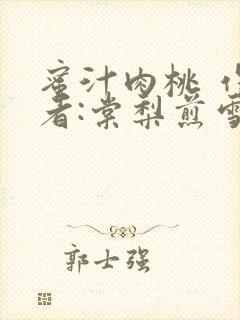 蜜汁肉桃
者:棠梨煎雪
郭士强